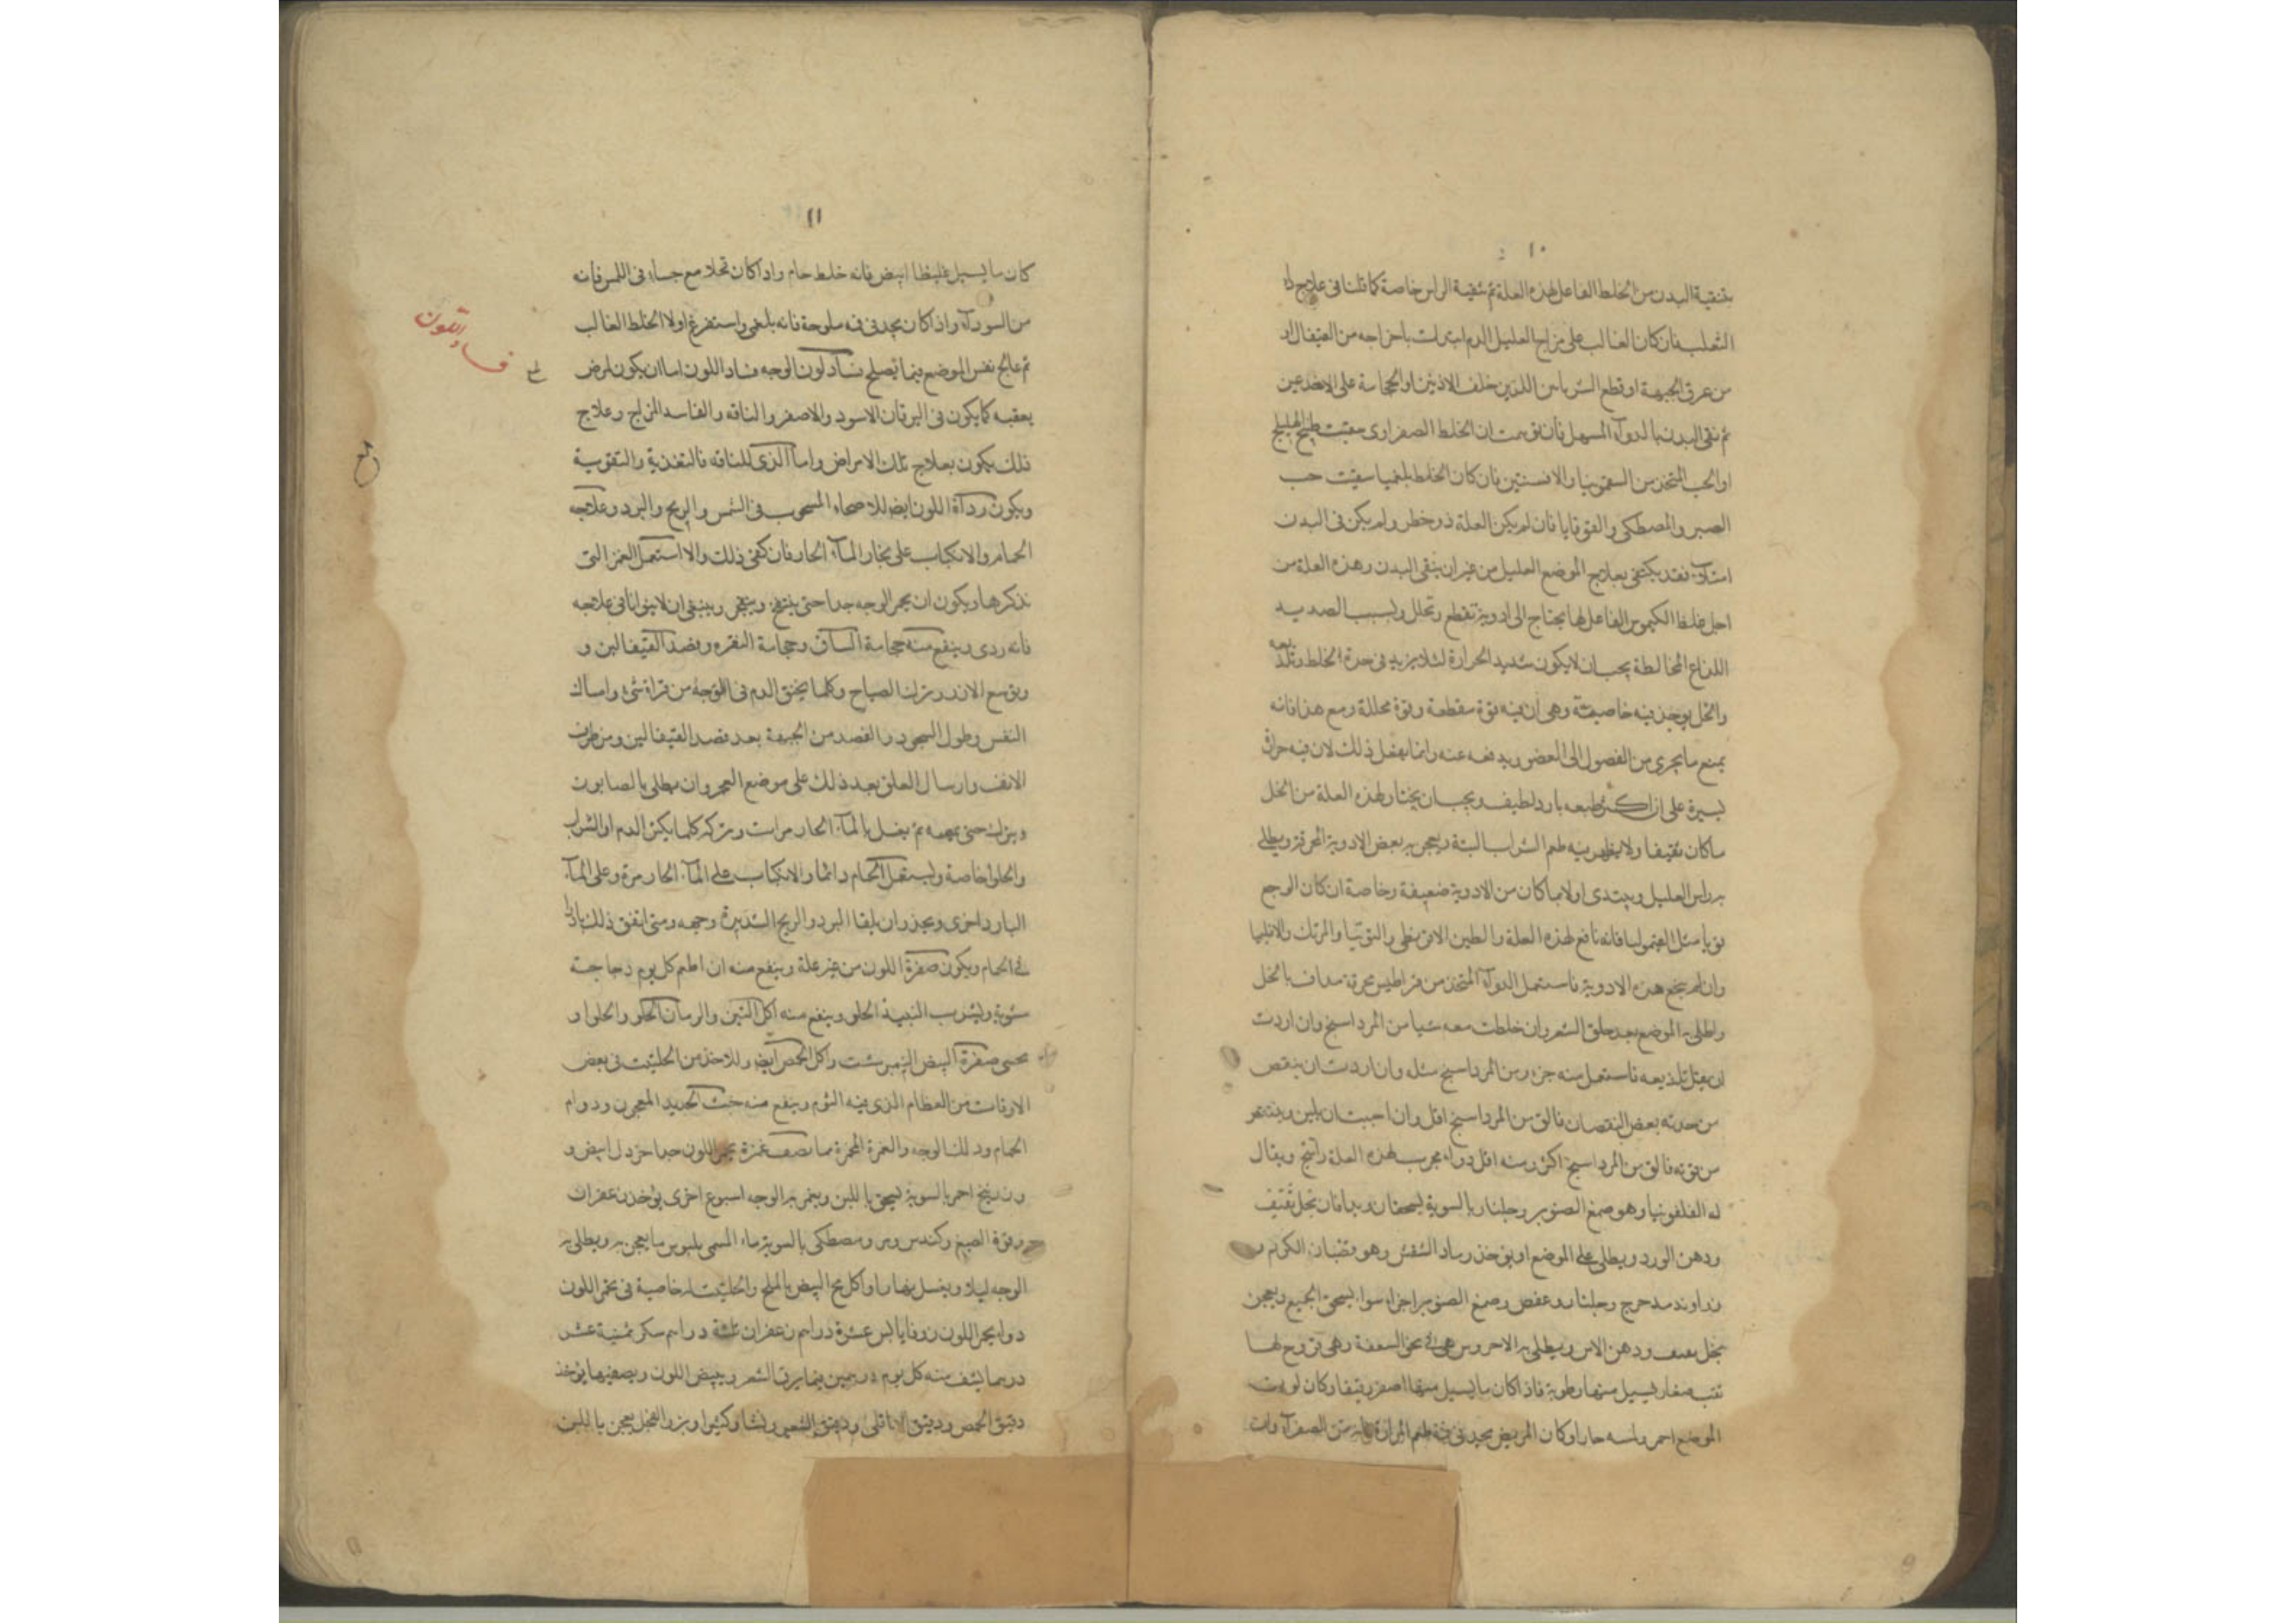 ١٠
بتنقية البدن من الخلط الفاعل لهذه العلة ثم بتنقية الراس خاصة كما قلنا فى علاج داء
الثعلب فان كان الغالب على مزاج العليل الدم ابتدات باخراجه من القيفال او
من عرق الجبهة او قطع الشرياسن اللذين خلف الاذنين او الحجامة على الاخدعين
ثم نقى البدن بالدوآء المسهل فان توهمت ان الخلط الصفراوى سقيت طبيخ الهليلج
او الحب المتخذ من السقمونيا والافسنتين فان كان الخلط بلغميا سقيت حب
الصبر والمصطكى والقوقايا فان لم يكن العلة ذو خطر ولم يكن فى البدن
امتلاء فقد يكتفى بعلاج الموضع العليل من غير ان ينقى البدن وهذه العلة من
اجل غلظ الكيموس الفاعل لها يحتاج الى ادوية تقطع وتحلل ولسبب الصديد
اللذاع المخالطة يجب ان لا يكون شديد الحرارة لئلا يزيد فى حدة الخلط وتلذيعه
والخل يوجد فيه خاصية وهى ان فيه قوة مقطعة وقوة محللة ومع هذا فانه
يمنع ما يجرى من الفضول الى العضو ويدفعه عنه وانما يفعل ذلك لان فيه حرارة
يسيرة على ان اكثر طبعه بارد لطيف ويجب ان يختار لهذه العلة من الخل
ما كان ثقيفا ولا يظهر فيه طعم الشراب البتة ويعجن به بعض الادوية المحرقة ويطلى
به راس العليل ويبتدى اولا بما كان من الادوية ضعيفة وخاصة ان كان الوجع
قويا مثل القيموليا فانه نافع لهذه العلة والطين الاقريطى والتوتيا والمرتك والاقليميا
وان لم ينجع هذه الادوية فاستعمل الدوآء المتخذ من قراطيس محرقة مداف بالخل
واطلى به الموضع بعد حلق الشعر وان خلطت معه شيا من المرداسنج وان اردت
ان يقل تلذيعه فاستعمل منه جزء ومن المرداسنج مثله وان اردت ان ينقص
من حدته بعض النقصان فالق من المرداسنج اقل وان احببت ان يلين وينتقص
من قوته فالق من المرداسنج اكثر ومنه اقل دواء مجرب لهذه العلة راتينج ويقال
له القلفونيا وهو صمغ الصنوبر وجلنار بالسوية يسحقان ويدافان بخل ثقيف
ودهن الورد ويطلى على الموضع او يؤخذ رماد الشقش وهو قضبان الكرم و
زراوند مدحرج وجلنار وعفص وصمغ الصنوبر اجزاء سواء يسحق الجميع ويعجن
بخل ودهن الاس ويطلى به الاحر ومن هى فى نحو السعفة وهى قروح لها
ثقب صغار يسيل منها رطوبة فاذا كان ما يسيل منها اصفر رقيقا وكان لون
الموضع احمر ولمسه حارا وكان المريض يجد فى فمه طعم المرارة فانه من الصفرآء وان
١١
كان ما يسيل غليظا ابيض فانه خلط خام واذا كان قحلا مع جساء فى اللمس فانه
من السودآء واذا كان يجد فى فيه ملوحة فانه بلغمى واستفرغ اولا الخلط الغالب
ثم عالج نفس الموضع فيما يصلح فساد لون الوجه فساد اللون اما ان يكون لمرض
يعقبه كما يكون فى اليرقان الاسود والاصفر والناقه والفاسد المزاج وعلاج
ذلك يكون بعلاج تلك الامراض واما الذى للناقه فالتغذية والتقوية
ويكون ردآءة اللون ايضا للاصحاء المسحوب فى الشمس والريح والبرد وعلاجه
الحمام والانكباب على بخار المآء الحار فان كفى ذلك والا استعمل الغمر التى
نذكرها ويكون ان يحمر الوجه جدا حتى ينتفخ وينفجر وينبغى ان لا يتوانا فى علاجه
فانه ردى وينفع منه حجامة الساق وحجامة النقره وفصد القيفالين و
الازرار وترك الصياح وكلما يحقن الدم فى الوجه من قراة شئ وامساك
النفس وطول السجود والفصد من الجبهة بعد فصد القيفالين ومن طرف
الانف وارسال العلق بعد ذلك على موضع الحمر وان يطلى بالصابون
ويترك حتى ثم يغسل بالمآء الحار مرات ويتركه كلما يكثر الدم او الشراب
والحلوا خاصة وليستعمل الحمام دائما والانكباب على المآء الحار مرة وعلى المآء
البارد اخرى ويحذر ان يلقا البرد والريح الشديدة وجهه ومتى اتفق ذلك بادر
فى الحمام ويكون صفرة اللون من غير علة وينفع منه ان اطعم كل يوم دجاجة
مشوية وليشرب النبيذ الحلو وينفع منه اكل التين والرمان الحلو والحلوا و
يحسى صفرة البيض النيمبرشت واكل الحمص ايضا وللاخذ من الحلتيت فى بعض
الاوقات من العظام الذى فيه الثوم وينفع منه خبث الحديد المعجون ودوام
الحمام ودلك الوجه والغمرة المحمرة مما نصف غمزة يحمر اللون جدا خردل ابيض و
زرنيخ احمر بالسوية يسحق باللبن ويغمر به الوجه اسبوع اخرى يؤخذ زعفران
وفوة الصبغ وكندس ومر ومصطكى بالسوية ماء المسمى بلبوس ما يعجن به ويطلى به
الوجه ليلا ويغسل نهارا واكل مح البيض بالملح والحلتيت له خاصية فى تحمر اللون
دوا يحمر اللون زوفا يابس عشرة دراهم زعفران ثلثة دراهم سكر ثمنية عشر
درهما يشف منه كل يوم درهمين فيما يرق الشعر ويبيض اللون ويصفيها يؤخذ
دقيق الحمص ودقيق الباقلى ودقيق الشعير ونشا وكثيرا وبزر الفجل يعجن باللبن
فساد اللون